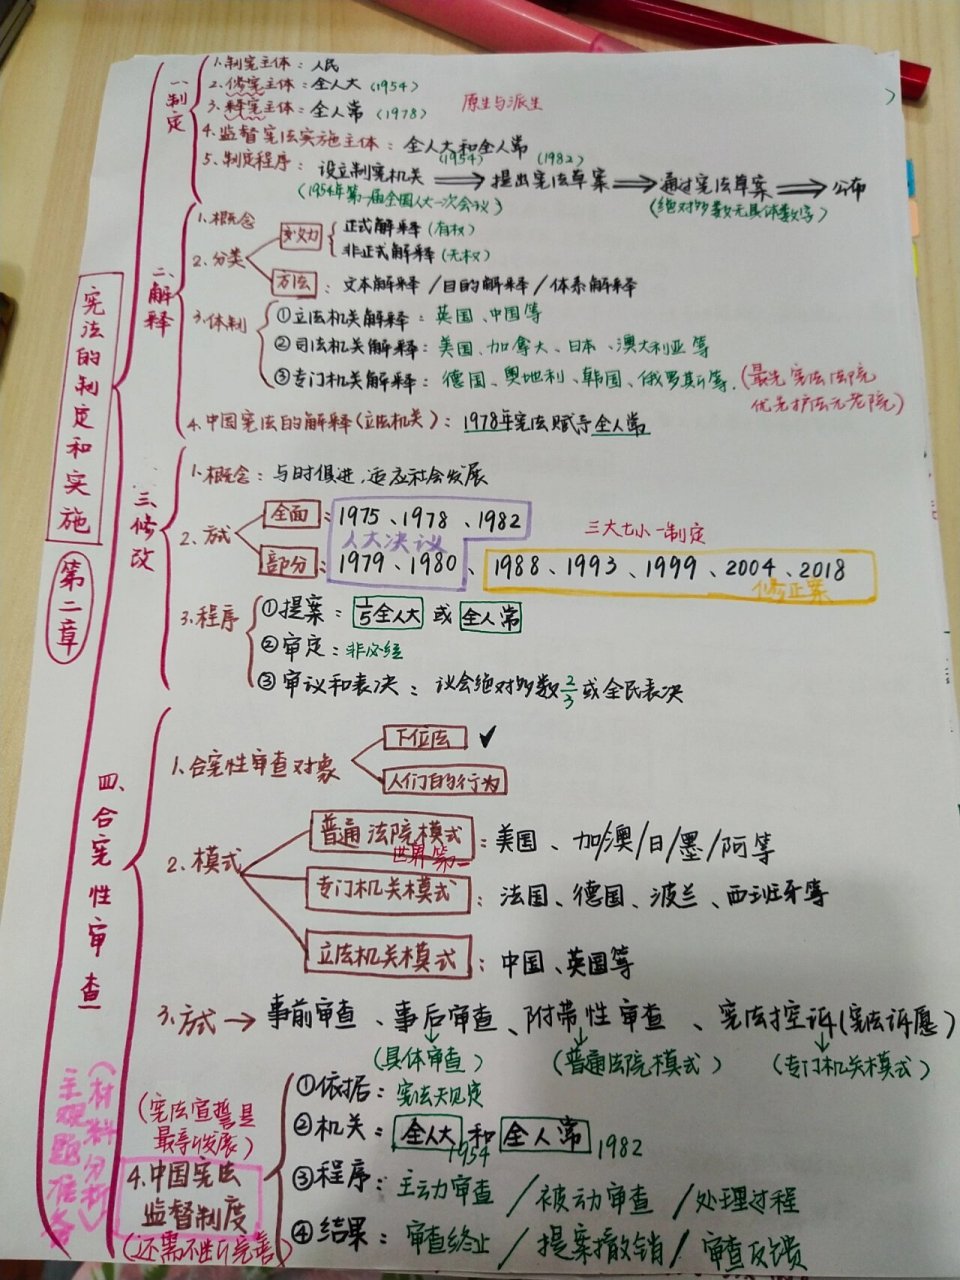 宪法的制定和实施
第二章
一、制定
1.制宪主体：人民
2.修宪主体：全人大（1954）
3.释宪主体：全人常（1978）
原生与派生
4.监督宪法实施主体：全人大和全人常
（1954）（1982）
5.制定程序：设立制宪机关⟹提出宪法草案⟹通过宪法草案⟹公布
（1954年第一届全国人大一次会议）
（绝对多数无具体数字）
二、解释
1.概念
2.分类
效力
正式解释（有权）
非正式解释（无权）
方法：文本解释/目的解释/体系解释
3.体制
①立法机关解释：英国、中国等
②司法机关解释：美国、加拿大、日本、澳大利亚等
③专门机关解释：德国、奥地利、韩国、俄罗斯等.
（最先宪法法院
优先护法元老院）
4.中国宪法的解释（立法机关）：1978年宪法赋予全人常
三、修改
1.概念：与时俱进，适应社会发展
2.方式
全面：1975、1978、1982
人大决议
三大七小一制定
部分：1979、1980、1988、1993、1999、2004、2018
修正案
3.程序
①提案：1/5全人大或全人常
②审定：非必经
③审议和表决：议会绝对多数2/3或全民表决
四、合宪性审查
1.合宪性审查对象
下位法 ✓
人们的行为
2.模式
普通法院模式：美国、加/澳/日/墨/阿等
世界第一
专门机关模式：法国、德国、波兰、西班牙等
立法机关模式：中国、英国等
3.方式→事前审查、事后审查、附带性审查、宪法控诉（宪法诉愿）
（具体审查）
（普通法院模式）
（专门机关模式）
（材料分析）
主观题准备
（宪法宣誓是
最新发展）
4.中国宪法
监督制度
（还需不断完善）
①依据：宪法规定
②机关：全人大和全人常
1954 1982
③程序：主动审查/被动审查/处理过程
④结果：审查终止/提案撤销/审查反馈